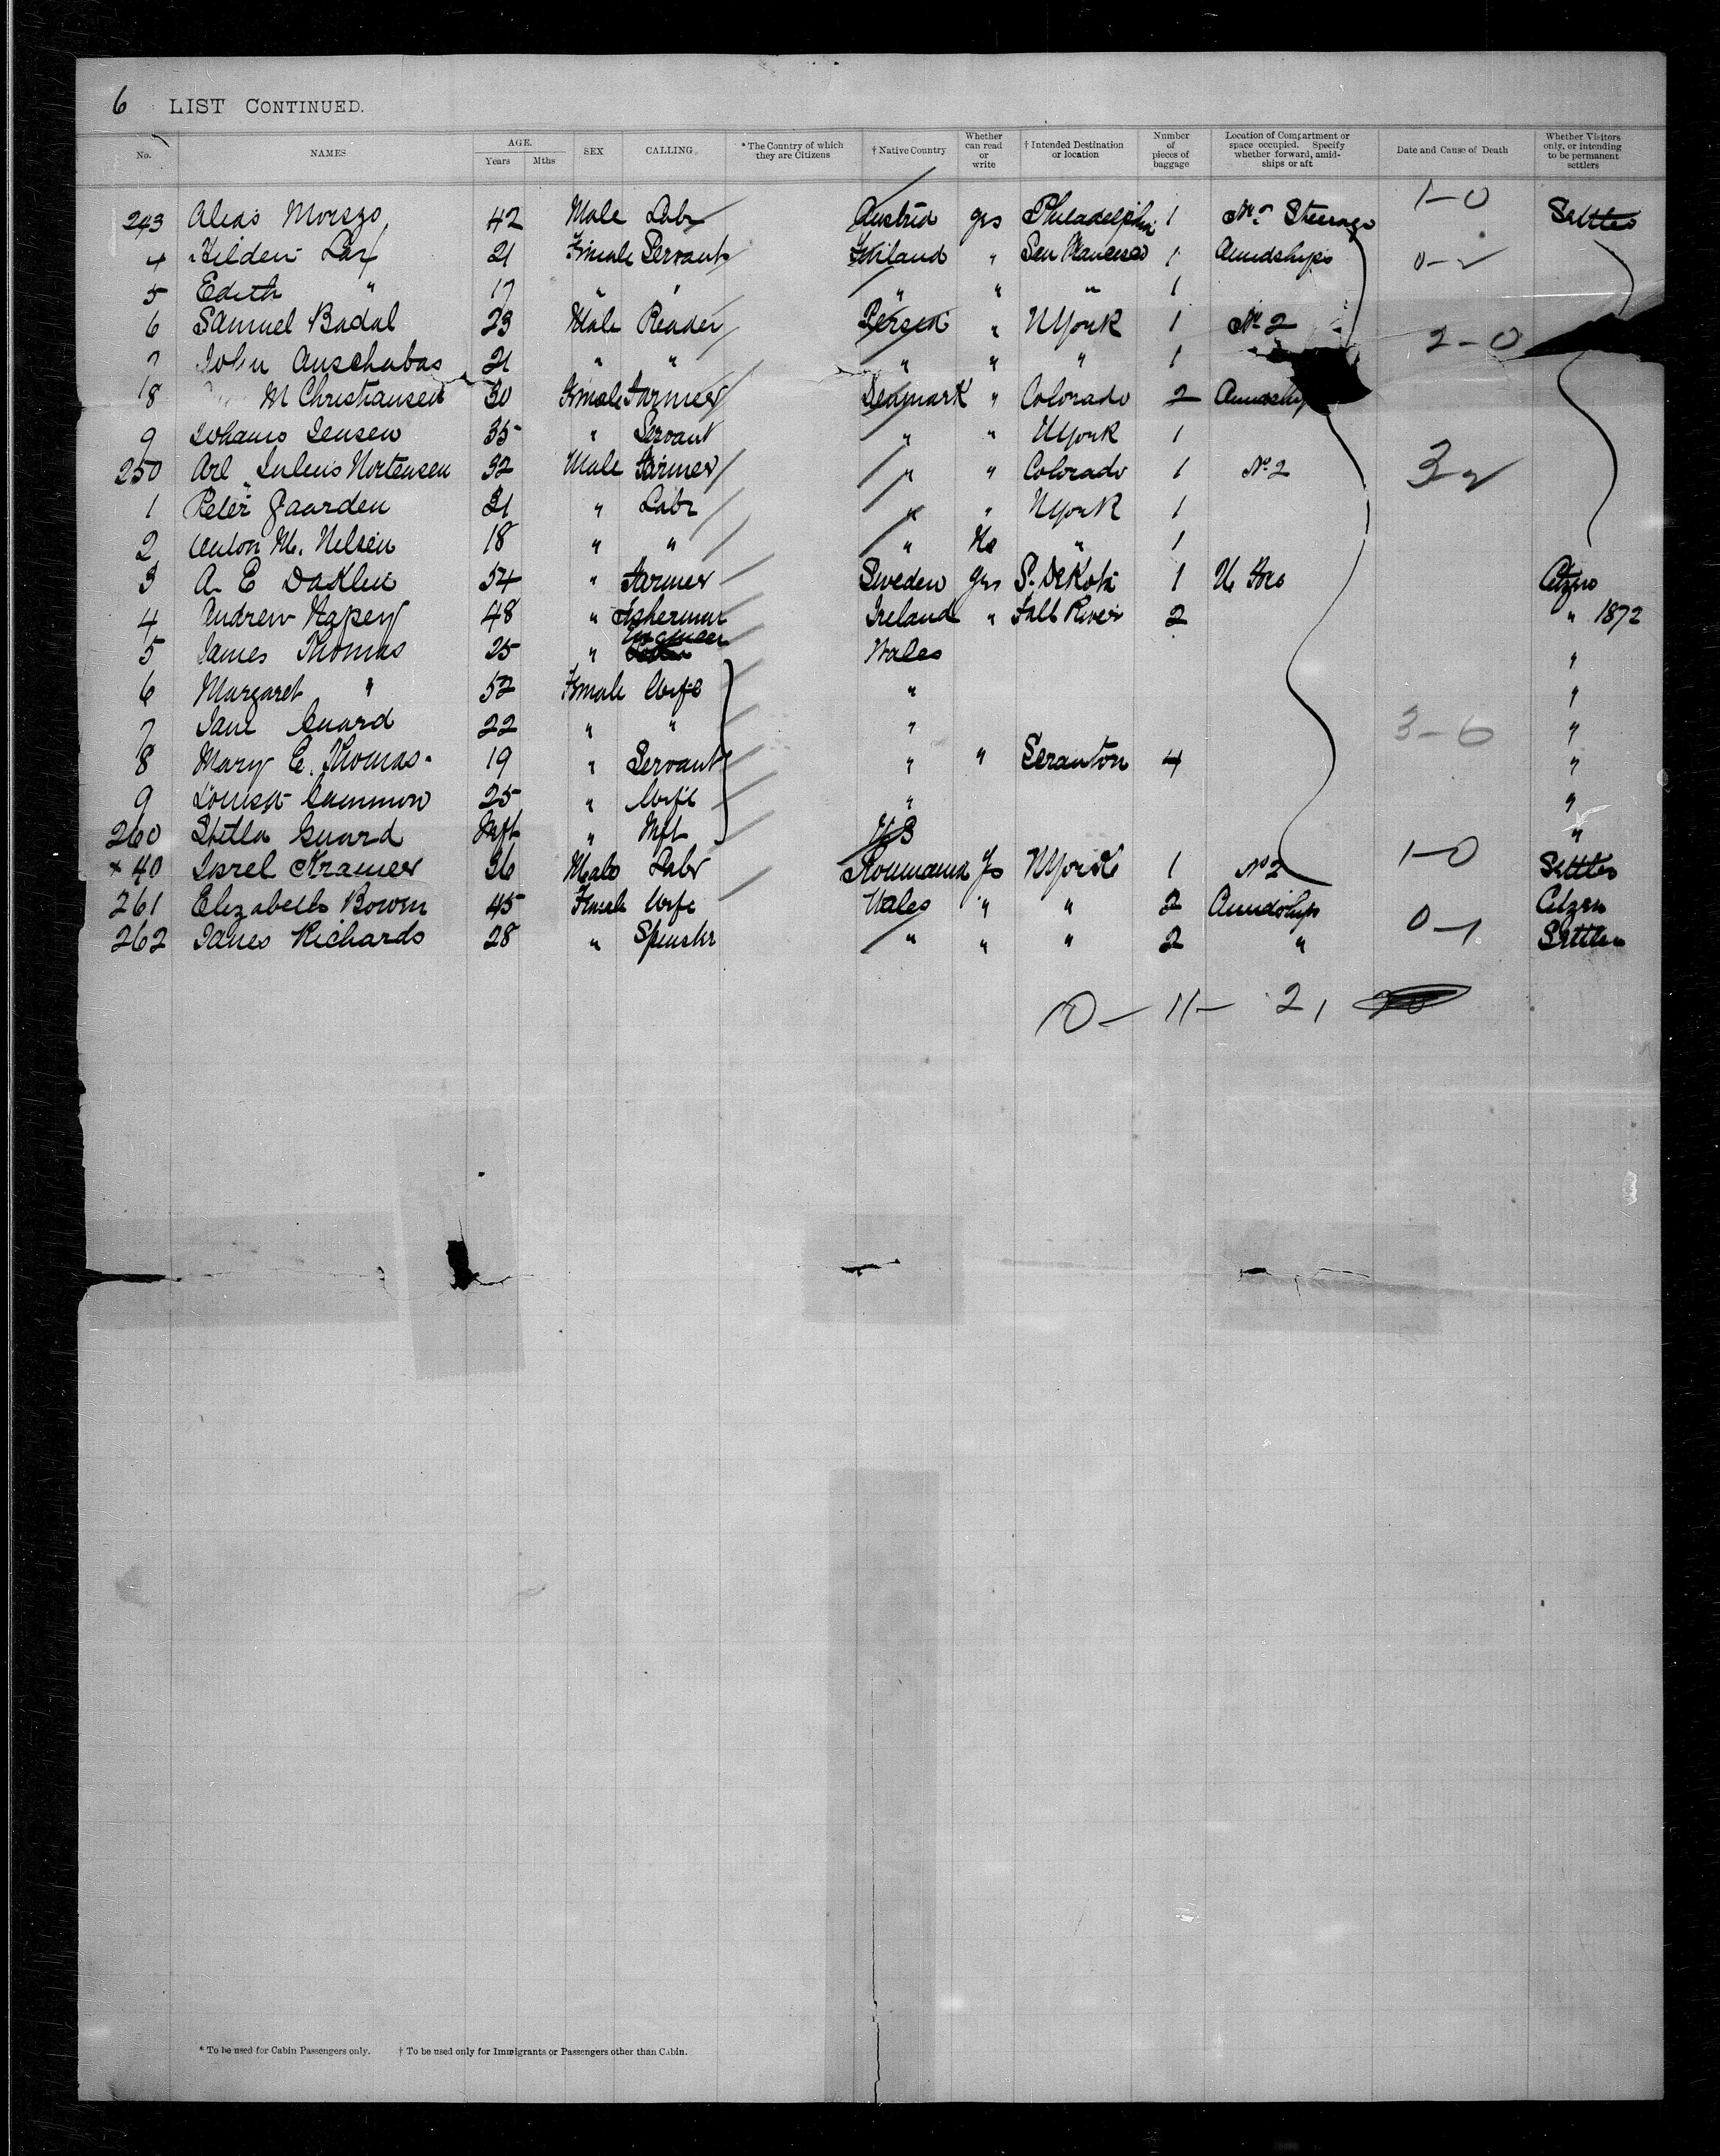 6 LIST CONTINUED.
No. NAMES AGE. Years Mths SEX CALLING * The Country of which they are Citizens † Native Country Whether can read or write † Intended Destination or location Number of pieces of baggage Location of Compartment or space occupied. Specify whether forward, amidships or aft Date and Cause of Death Whether Visitors only, or intending to be permanent settlers
243 42 Male Labr Austria yes Philadelphia 1 Steerage 1-0 Settler
4 21 Female Servant " San Francisco 1 Amidships 0-2
5 Edith " 17 " " " " " 1
6 Samuel Badal 23 Male Persia " N York 1 No 2
7 John 21 " " " " " 1 2-0
8 M Christiansen 30 Female Farmer Denmark " Colorado 2
9 Jensen 35 " Servant " " N York 1
250 Mortensen 32 Male Farmer " " Colorado 1 No 2 3-2
1 Peter Gaarden 31 " Labr " " N York 1
2 Anton M. Nelsen 18 " " " No " 1
3 A. E 54 " Farmer Sweden yes S. Dakota 1
4 Andrew 48 " Fisherman Ireland " Fall River 2 " 1872
5 James Thomas 25 " Engineer Wales "
6 Margaret " 52 Female Wife " "
7 Jane Guard 22 " " " 3-6 "
8 Mary E. Thomas. 19 " Servant " " Scranton 4 "
9 Louisa 25 " Wife " "
260 Stella Guard Inft " Inft US "
x 40 Isrel Kramer 36 Male Labr Roumania N York 1 No 2 1-0 Settler
261 Elizabeth Bowen 45 Female Wife Wales " " 2 Amidships Citzen
262 Richards 28 " Spinster " " " 2 " 0-1 Settler
10- 11- 21
* To be used for Cabin Passengers only. † To be used only for Immigrants or Passengers other than Cabin.